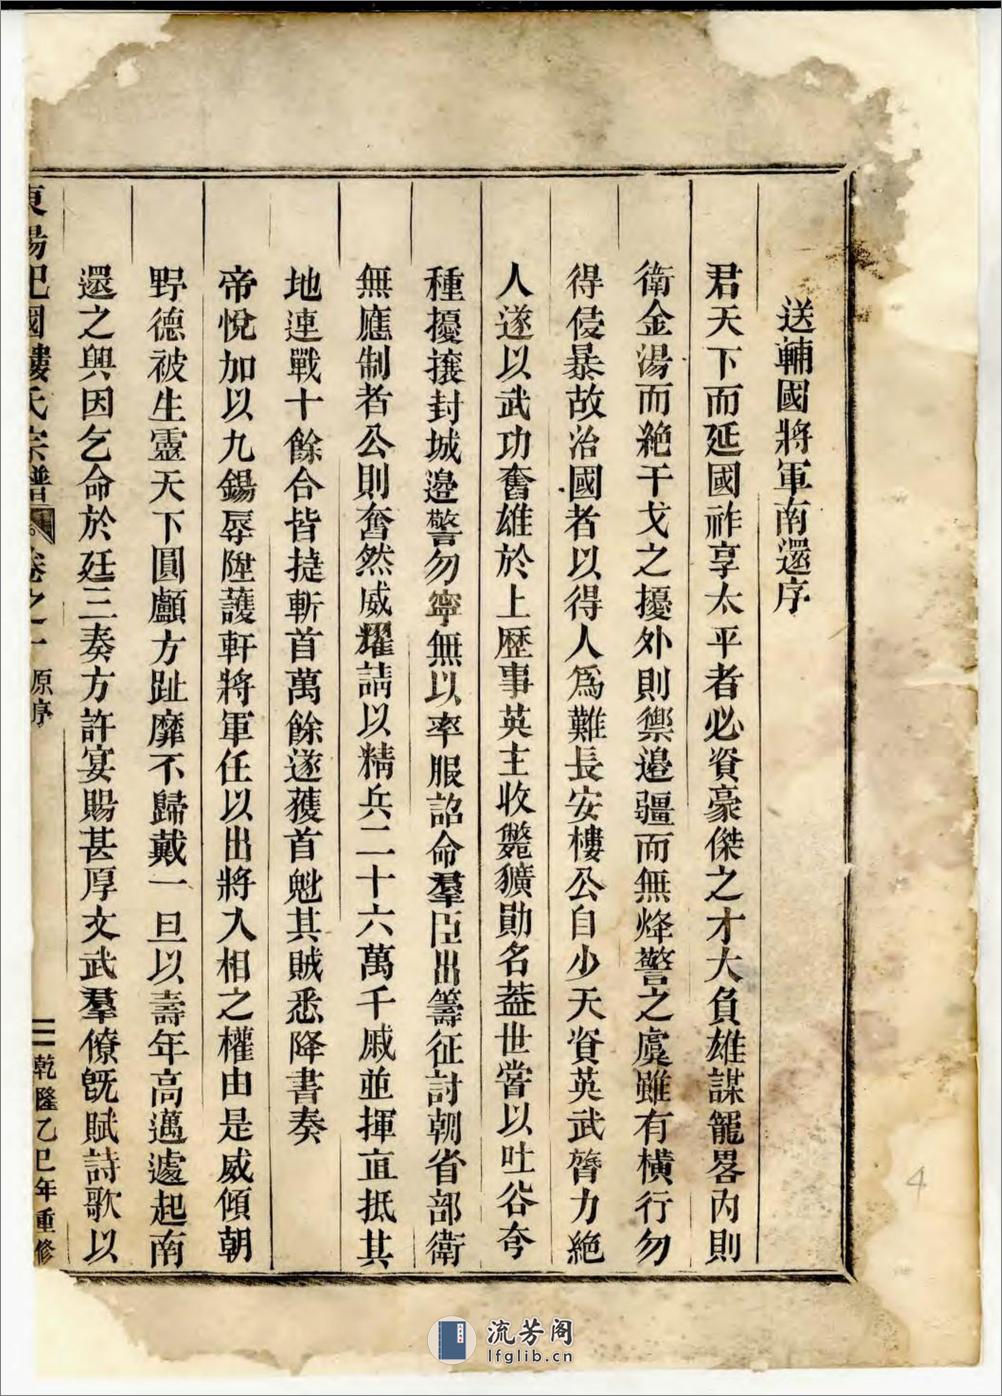 送輔國將軍南還序
君天下而延國祚享太平者必資豪傑之才大負雄謀寵畧內則
衛金湯而絶干戈之擾外則禦邉疆而無烽警之虞雖有橫行勿
得侵暴故治國者以得人爲難長安樓公自少天資英武膂力絶
人遂以武功奮雄於上歷事英主收斃獷勛名葢世嘗以吐谷夸
種擾攘封城邉警勿寧無以率服詔命羣臣出籌征討朝省部衛
無應制者公則奮然威耀請以精兵二十六萬千戚並揮直抵其
地連戰十餘合皆㨗斬首萬餘遂獲首魁其賊悉降書奏
帝悅加以九錫辱陞護軒將軍任以出將入相之權由是威傾朝
野德被生靈天下圓顱方趾靡不歸戴一旦以壽年高邁遽起南
還之興因乞命於廷三奏方許宴賜甚厚文武羣僚旣賦詩歌以
東陽𣏌國樓氏宗譜 卷之一 原序 二 乾隆乙巳年重修
4
流芳阁
lfglib.cn